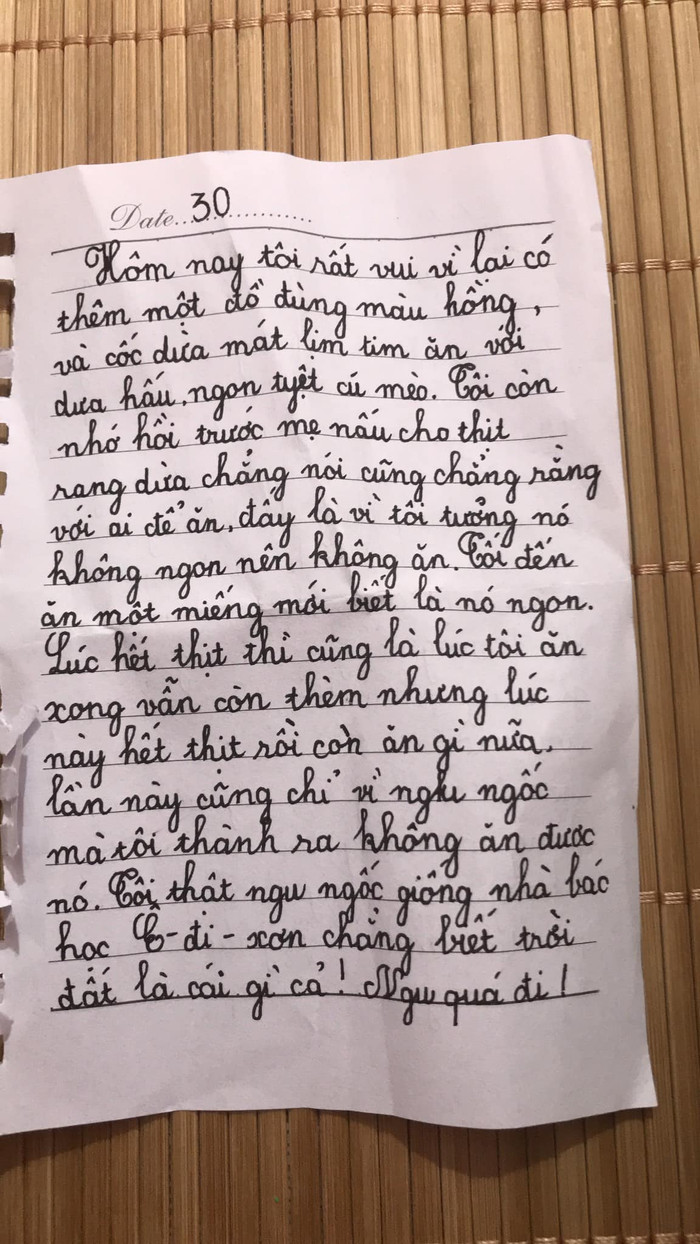 Date...30............
Hôm nay tôi rất vui vì lại có
thêm một đồ dùng màu hồng,
và cốc dừa mát lịm tim ăn với
dưa hấu, ngon tuyệt cú mèo. Tôi còn
nhớ hồi trước mẹ nấu cho thịt
rang dừa chẳng nói cũng chẳng rằng
với ai để ăn, đấy là vì tôi tưởng nó
không ngon nên không ăn. Tối đến
ăn một miếng mới biết là nó ngon.
Lúc hết thịt thì cũng là lúc tôi ăn
xong vẫn còn thèm nhưng lúc
này hết thịt rồi còn ăn gì nữa,
lần này cũng chỉ vì ngu ngốc
mà tôi thành ra không ăn được
nó. Tôi thật ngu ngốc giống nhà bác
học Ê-đi-xơn chẳng biết trời
đất là cái gì cả! Ngu quá đi!